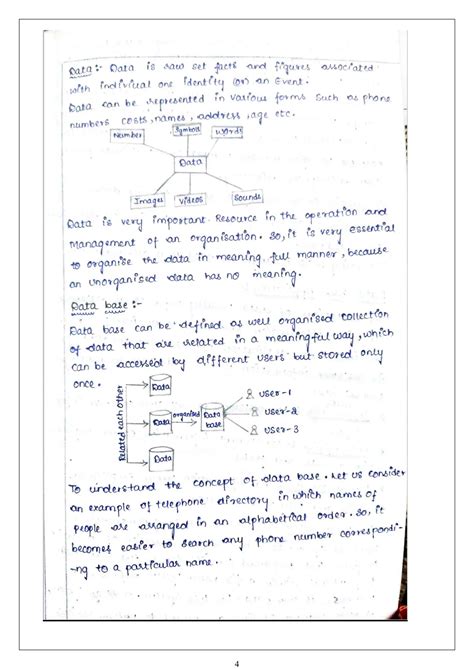 Data :- Data is raw set facts and figures associated
with indiviual one identity (or) an Event.
Data can be represented in various forms such as phone
numbers costs, names, address, age etc.
Number
Symbol
words
Data
Images
Videos
Sounds
Data is very important Resource in the operation and
Management of an organisation. So, it is very essential
to organise the data in meaning full manner, because
an unorganised data has no meaning.
Data base :-
Data base can be defined as well organised collection
of data that are related in a meaningful way, which
can be accessed by different users but stored only
once.
Related each other
Data
Data
Data
organised
Data
base
user-1
user-2
user-3
To understand the concept of data base. Let us consider
an example of telephone directory in which names of
people are arranged in an alphabetical order. So, it
becomes easier to search any phone number correspondi-
ng to a particular name.
4